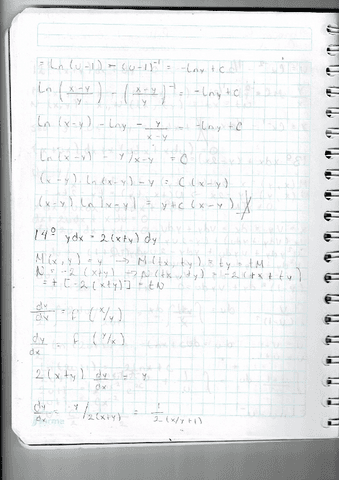 = Ln (u-1) - (u-1)⁻¹ = -Lny + C
Ln (x-y / y) - (x-y / y)⁻¹ = -Lny + C
Ln (x-y) - Lny - y / x-y = -Lny + C
Ln (x-y) - y/x-y = C
(x-y) Ln (x-y) - y = C (x-y)
(x-y) Ln (x-y) = y + C (x-y)
14º ydx = 2(x+y) dy
M(x,y) = y → M(tx, ty) = ty = tM
N = -2 (x+y) → N(tx, ty) = -2(tx + ty)
= t [-2(x+y)] = tN
= f (x/y)
dy/dx = f (y/x)
2(x+y)
= 1 / 2(x/y+1)